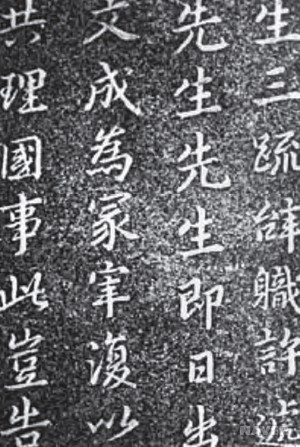 生三疏辞職許
先生先生即日出
文成為冢宰復以
共理國事此豈告